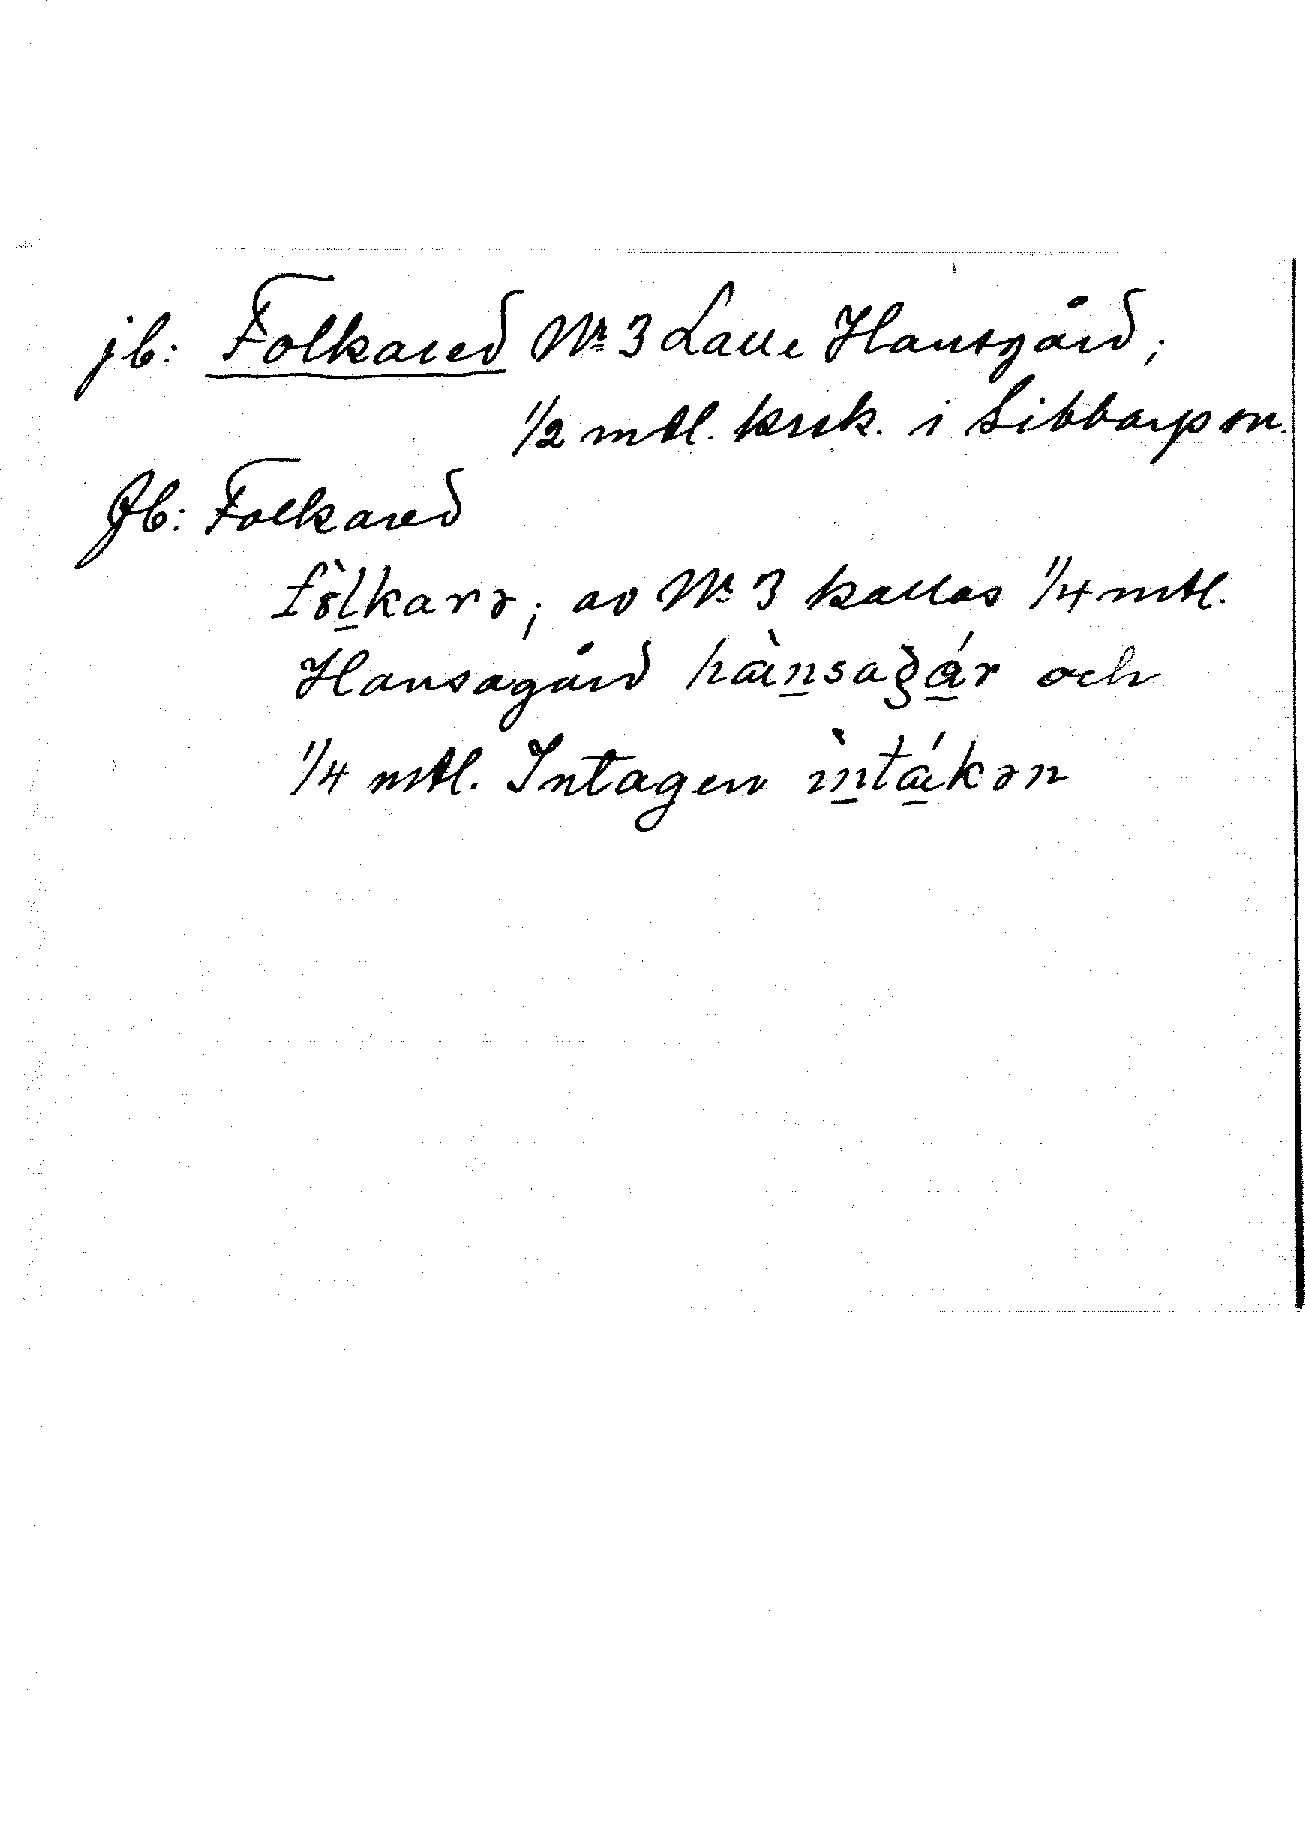 jb: Folkared Nr 3 Lalle Hansgård;
1/2 mtl. krsk. i Sibbarp sn.
Jb: Folkared
fòlkarə; av Nr 3 kallas 1/4 mtl.
Hansagård hànsagár och
1/4 mtl. Intagen ìntákən